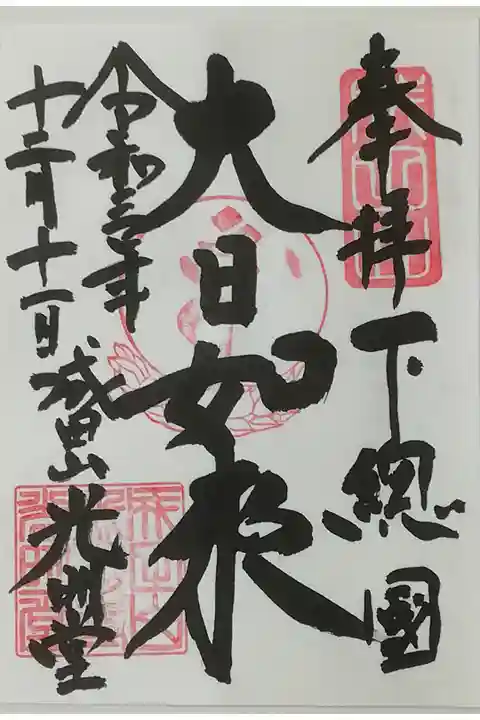 奉拝 下總國
大日如来
令和三年
十二月十一日 成田山 光明堂